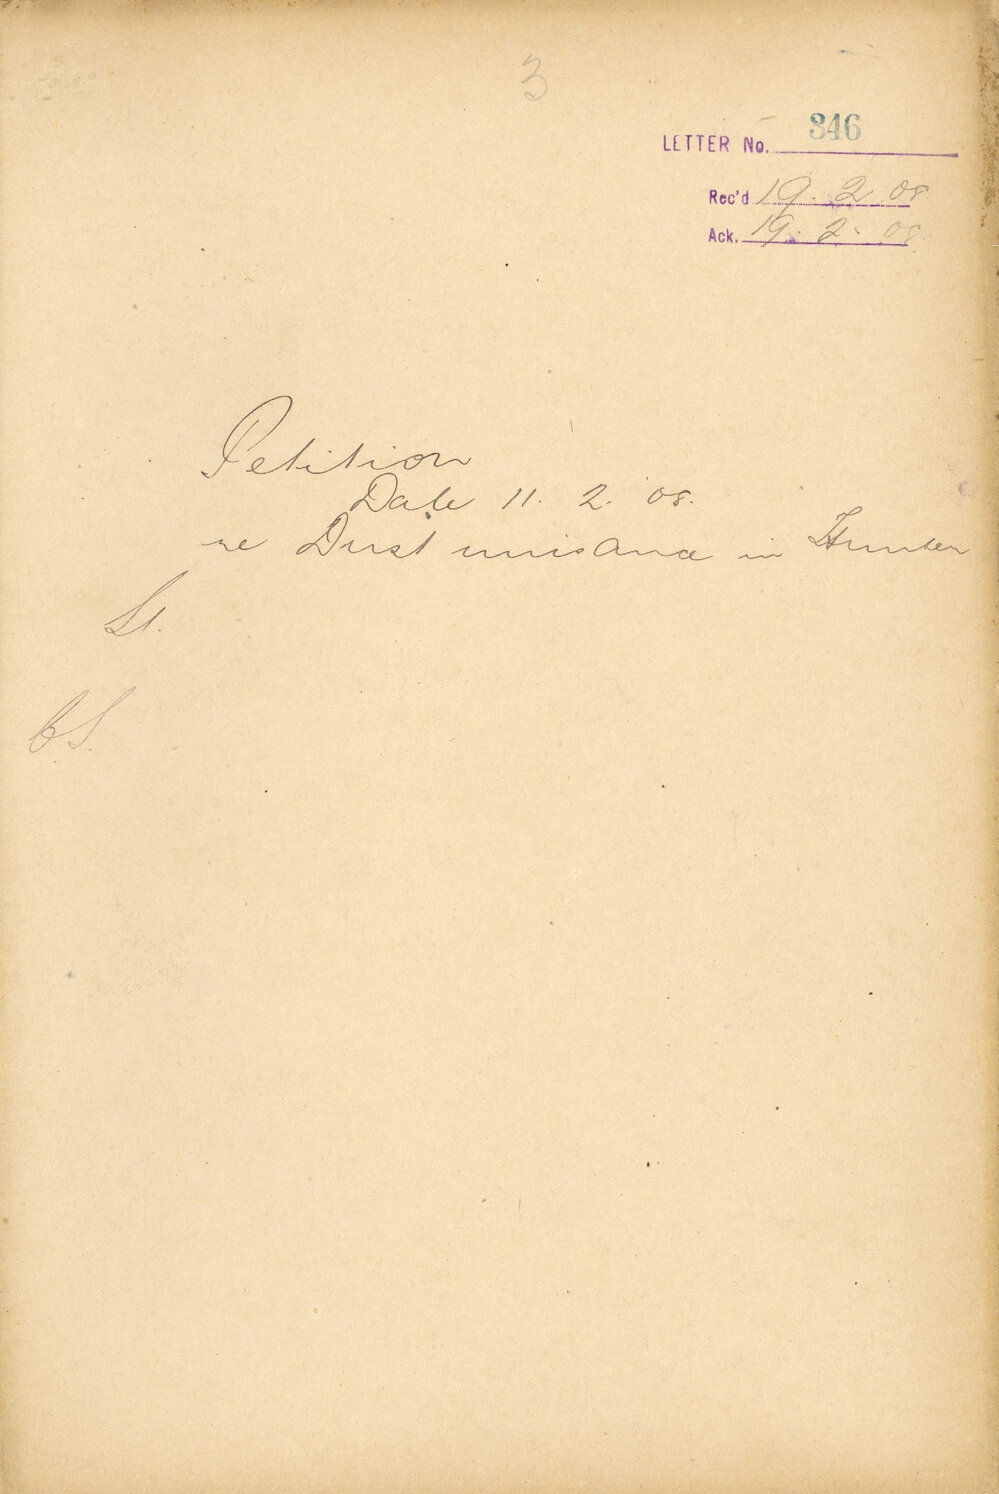 3
LETTER No. 846
Rec'd 19. 2. 08
Ack. 19. 2. 08.
Petition
Date 11. 2. 08.
re Dust nuisance in Hunter
St.